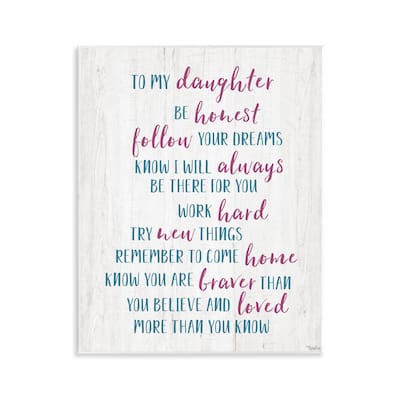 TO MY daughter
BE honest
follow YOUR DREAMS
KNOW I WILL always
BE THERE FOR YOU
WORK hard
TRY new THINGS
REMEMBER TO COME home
KNOW YOU ARE braver THAN
YOU BELIEVE AND loved
MORE THAN YOU KNOW